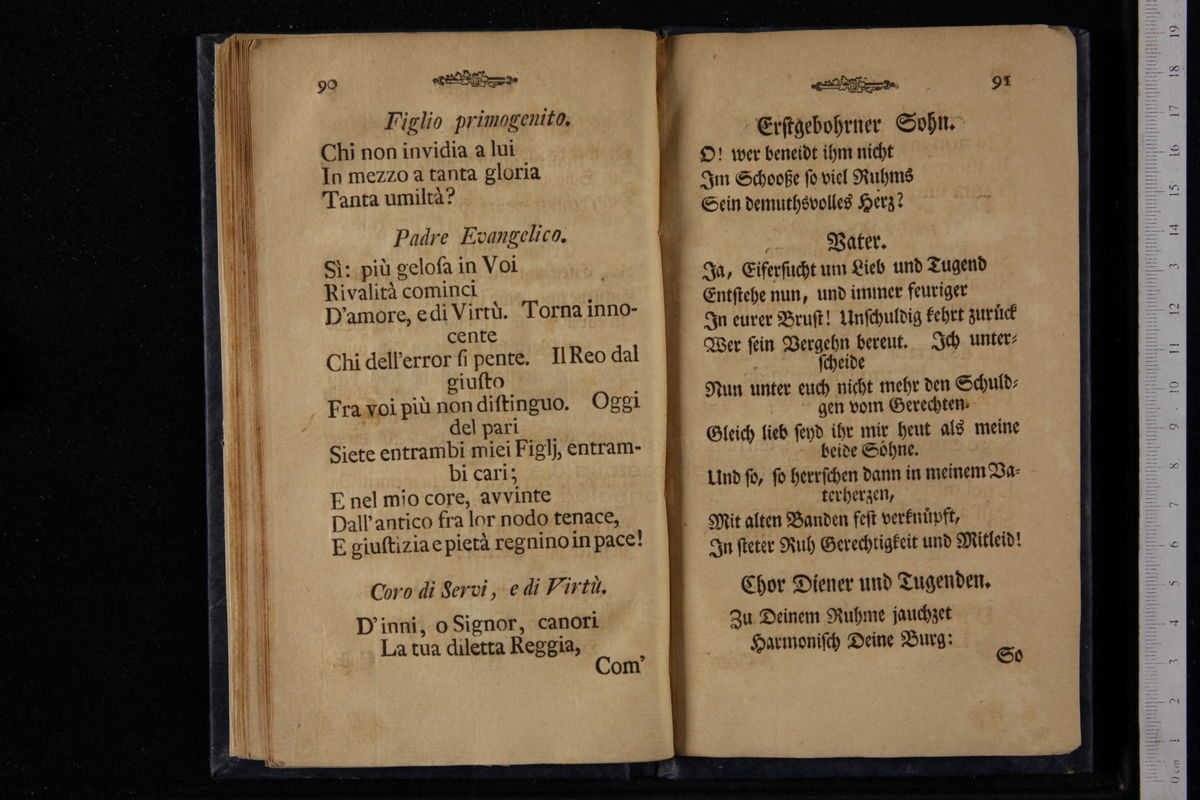 90
Figlio primogenito.
Chi non invidia a lui
In mezzo a tanta gloria
Tanta umiltà?
Padre Evangelico.
Sì: più geloſa in Voi
Rivalità cominci
D'amore, e di Virtù. Torna inno-
cente
Chi dell'error ſi pente. Il Reo dal
giuſto
Fra voi più non diſtinguo. Oggi
del pari
Siete entrambi miei Figlj, entram-
bi cari;
E nel mio core, avvinte
Dall' antico fra lor nodo tenace,
E giuſtizia e pietà regnino in pace!
Coro di Servi, e di Virtù.
D'inni, o Signor, canori
La tua diletta Reggia,
Com'
91
Erſtgebohrner Sohn.
O! wer beneidt ihm nicht
Im Schooße ſo viel Ruhms
Sein demuthsvolles Herz?
Vater.
Ja, Eiferſucht um Lieb und Tugend
Entſtehe nun, und immer feuriger
In eurer Bruſt! Unſchuldig kehrt zurück
Wer ſein Vergehn bereut. Ich unter-
ſcheide
Nun unter euch nicht mehr den Schuld-
gen vom Gerechten.
Gleich lieb ſeyd ihr mir heut als meine
beide Söhne.
Und ſo, ſo herrſchen dann in meinem Va-
terherzen,
Mit alten Banden feſt verknüpft,
In ſteter Ruh Gerechtigkeit und Mitleid!
Chor Diener und Tugenden.
Zu Deinem Ruhme jauchzet
Harmoniſch Deine Burg:
So
0 cm 1 2 3 4 5 6 7 8 9 10 11 12 13 14 15 16 17 18 19